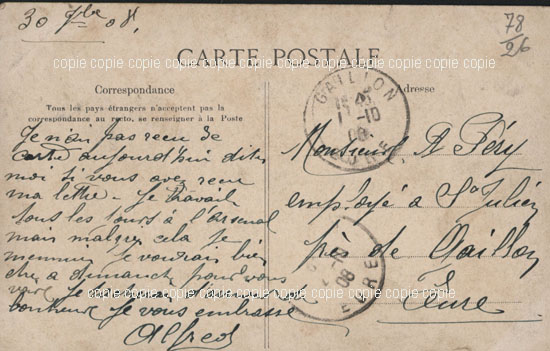 30 7bre 08.
78
26
CARTE POSTALE
copie copie copie copie copie copie copie copie copie copie copie
Correspondance
Adresse
Tous les pays étrangers n'acceptent pas la
correspondance au recto, se renseigner à la Poste
GAILLON
1-10
08
EURE
Je n'ai pas reçu de
carte aujourd'hui dites
moi si vous avez reçu
ma lettre. Je travail
tous les jours à l'Arsenal
mais malgré cela je
m'ennuy je voudrais bien
etre a dimanche pour vous
voir Je
bonheur Je vous embrasse
Alfred
Monsieur A Féry
employé à St Julien
près de Gaillon
Eure
08
EURE